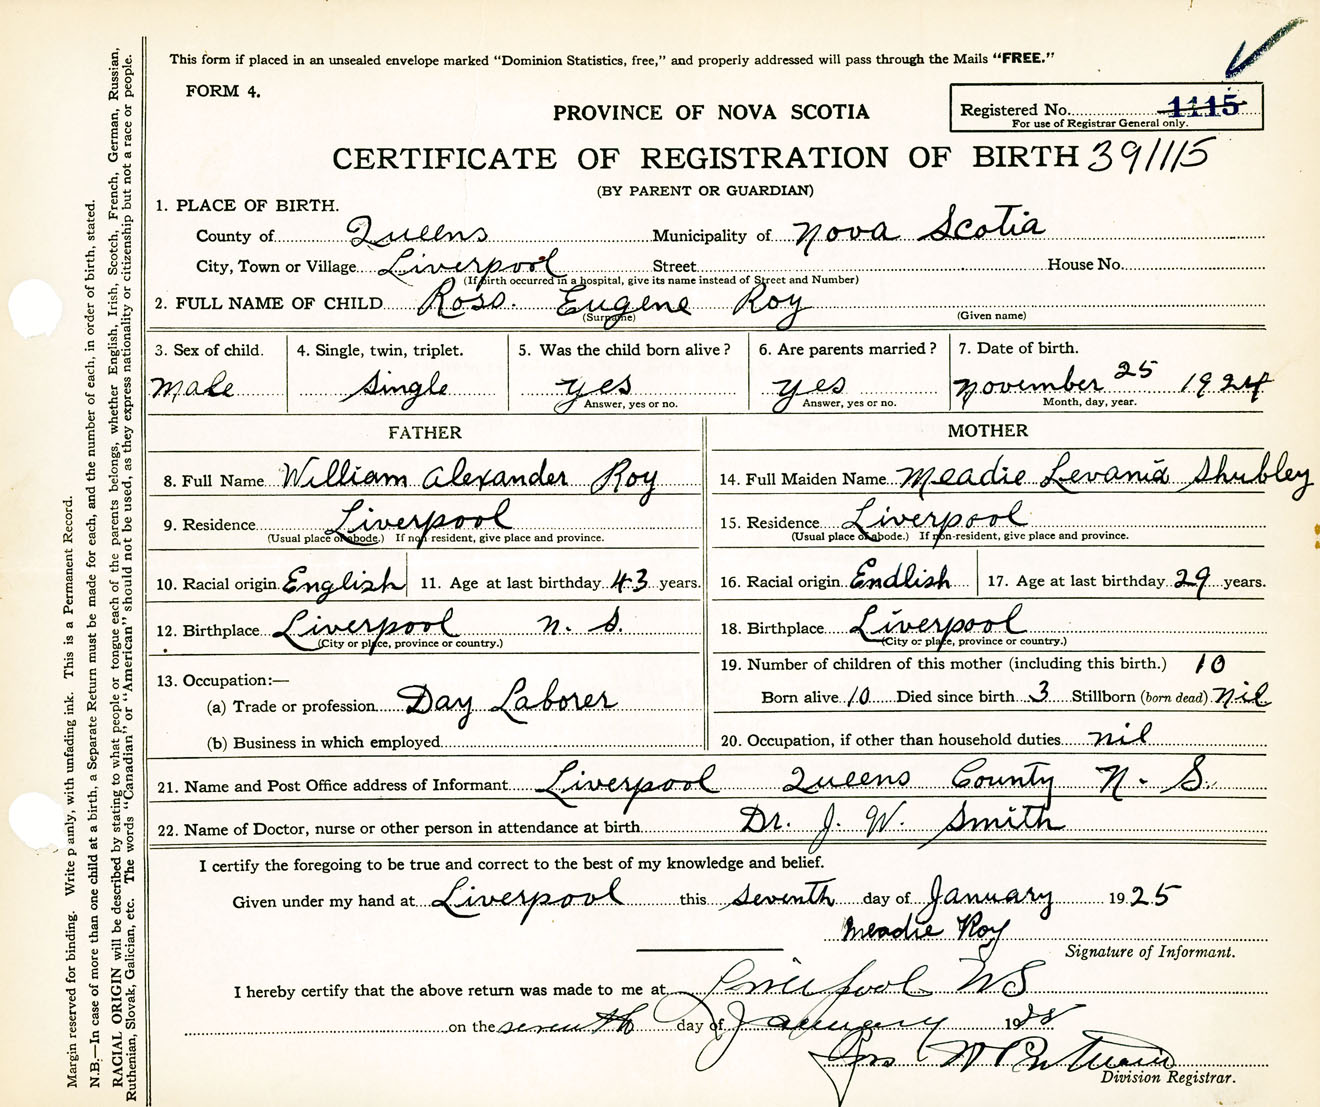 This form if placed in an unsealed envelope marked "Dominion Statistics, free," and properly addressed will pass through the Mails "FREE."
FORM 4.
PROVINCE OF NOVA SCOTIA
Registered No. 1115
For use of Registrar General only.
CERTIFICATE OF REGISTRATION OF BIRTH 391115
(BY PARENT OR GUARDIAN)
1. PLACE OF BIRTH.
County of Queens Municipality of Nova Scotia
City, Town or Village Liverpool Street House No.
(If birth occurred in a hospital, give its name instead of Street and Number)
2. FULL NAME OF CHILD Ross. Eugene Roy
(Surname) (Given name)
3. Sex of child. 4. Single, twin, triplet. 5. Was the child born alive? 6. Are parents married? 7. Date of birth.
Male single yes yes November 25 1924
Answer, yes or no. Answer, yes or no. Month, day, year.
FATHER MOTHER
8. Full Name William Alexander Roy 14. Full Maiden Name Meadie Levania Shubley
9. Residence Liverpool 15. Residence Liverpool
(Usual place of abode.) If non-resident, give place and province. (Usual place of abode.) If non-resident, give place and province.
10. Racial origin English 11. Age at last birthday 43 years. 16. Racial origin Endlish 17. Age at last birthday 29 years.
12. Birthplace Liverpool N. S. 18. Birthplace Liverpool
(City or place, province or country.) (City or place, province or country.)
13. Occupation:— 19. Number of children of this mother (including this birth.) 10
(a) Trade or profession Day Laborer Born alive 10 Died since birth 3 Stillborn (born dead) Nil
(b) Business in which employed 20. Occupation, if other than household duties nil
21. Name and Post Office address of Informant Liverpool Queens County N. S.
22. Name of Doctor, nurse or other person in attendance at birth Dr. J. W. Smith
I certify the foregoing to be true and correct to the best of my knowledge and belief.
Given under my hand at Liverpool this seventh day of January 1925
Meadie Roy
Signature of Informant.
I hereby certify that the above return was made to me at Liverpool NS
on the seventh day of January 1925
Division Registrar.
Margin reserved for binding. Write plainly, with unfading ink. This is a Permanent Record.
N.B.—In case of more than one child at a birth, a Separate Return must be made for each, and the number of each, in order of birth, stated.
RACIAL ORIGIN will be described by stating to what people or tongue each of the parents belongs, whether English, Irish, Scotch, French, German, Russian,
Ruthenian, Slovak, Galician, etc. The words "Canadian" or "American" should not be used, as they express nationality or citizenship but not a race or people.